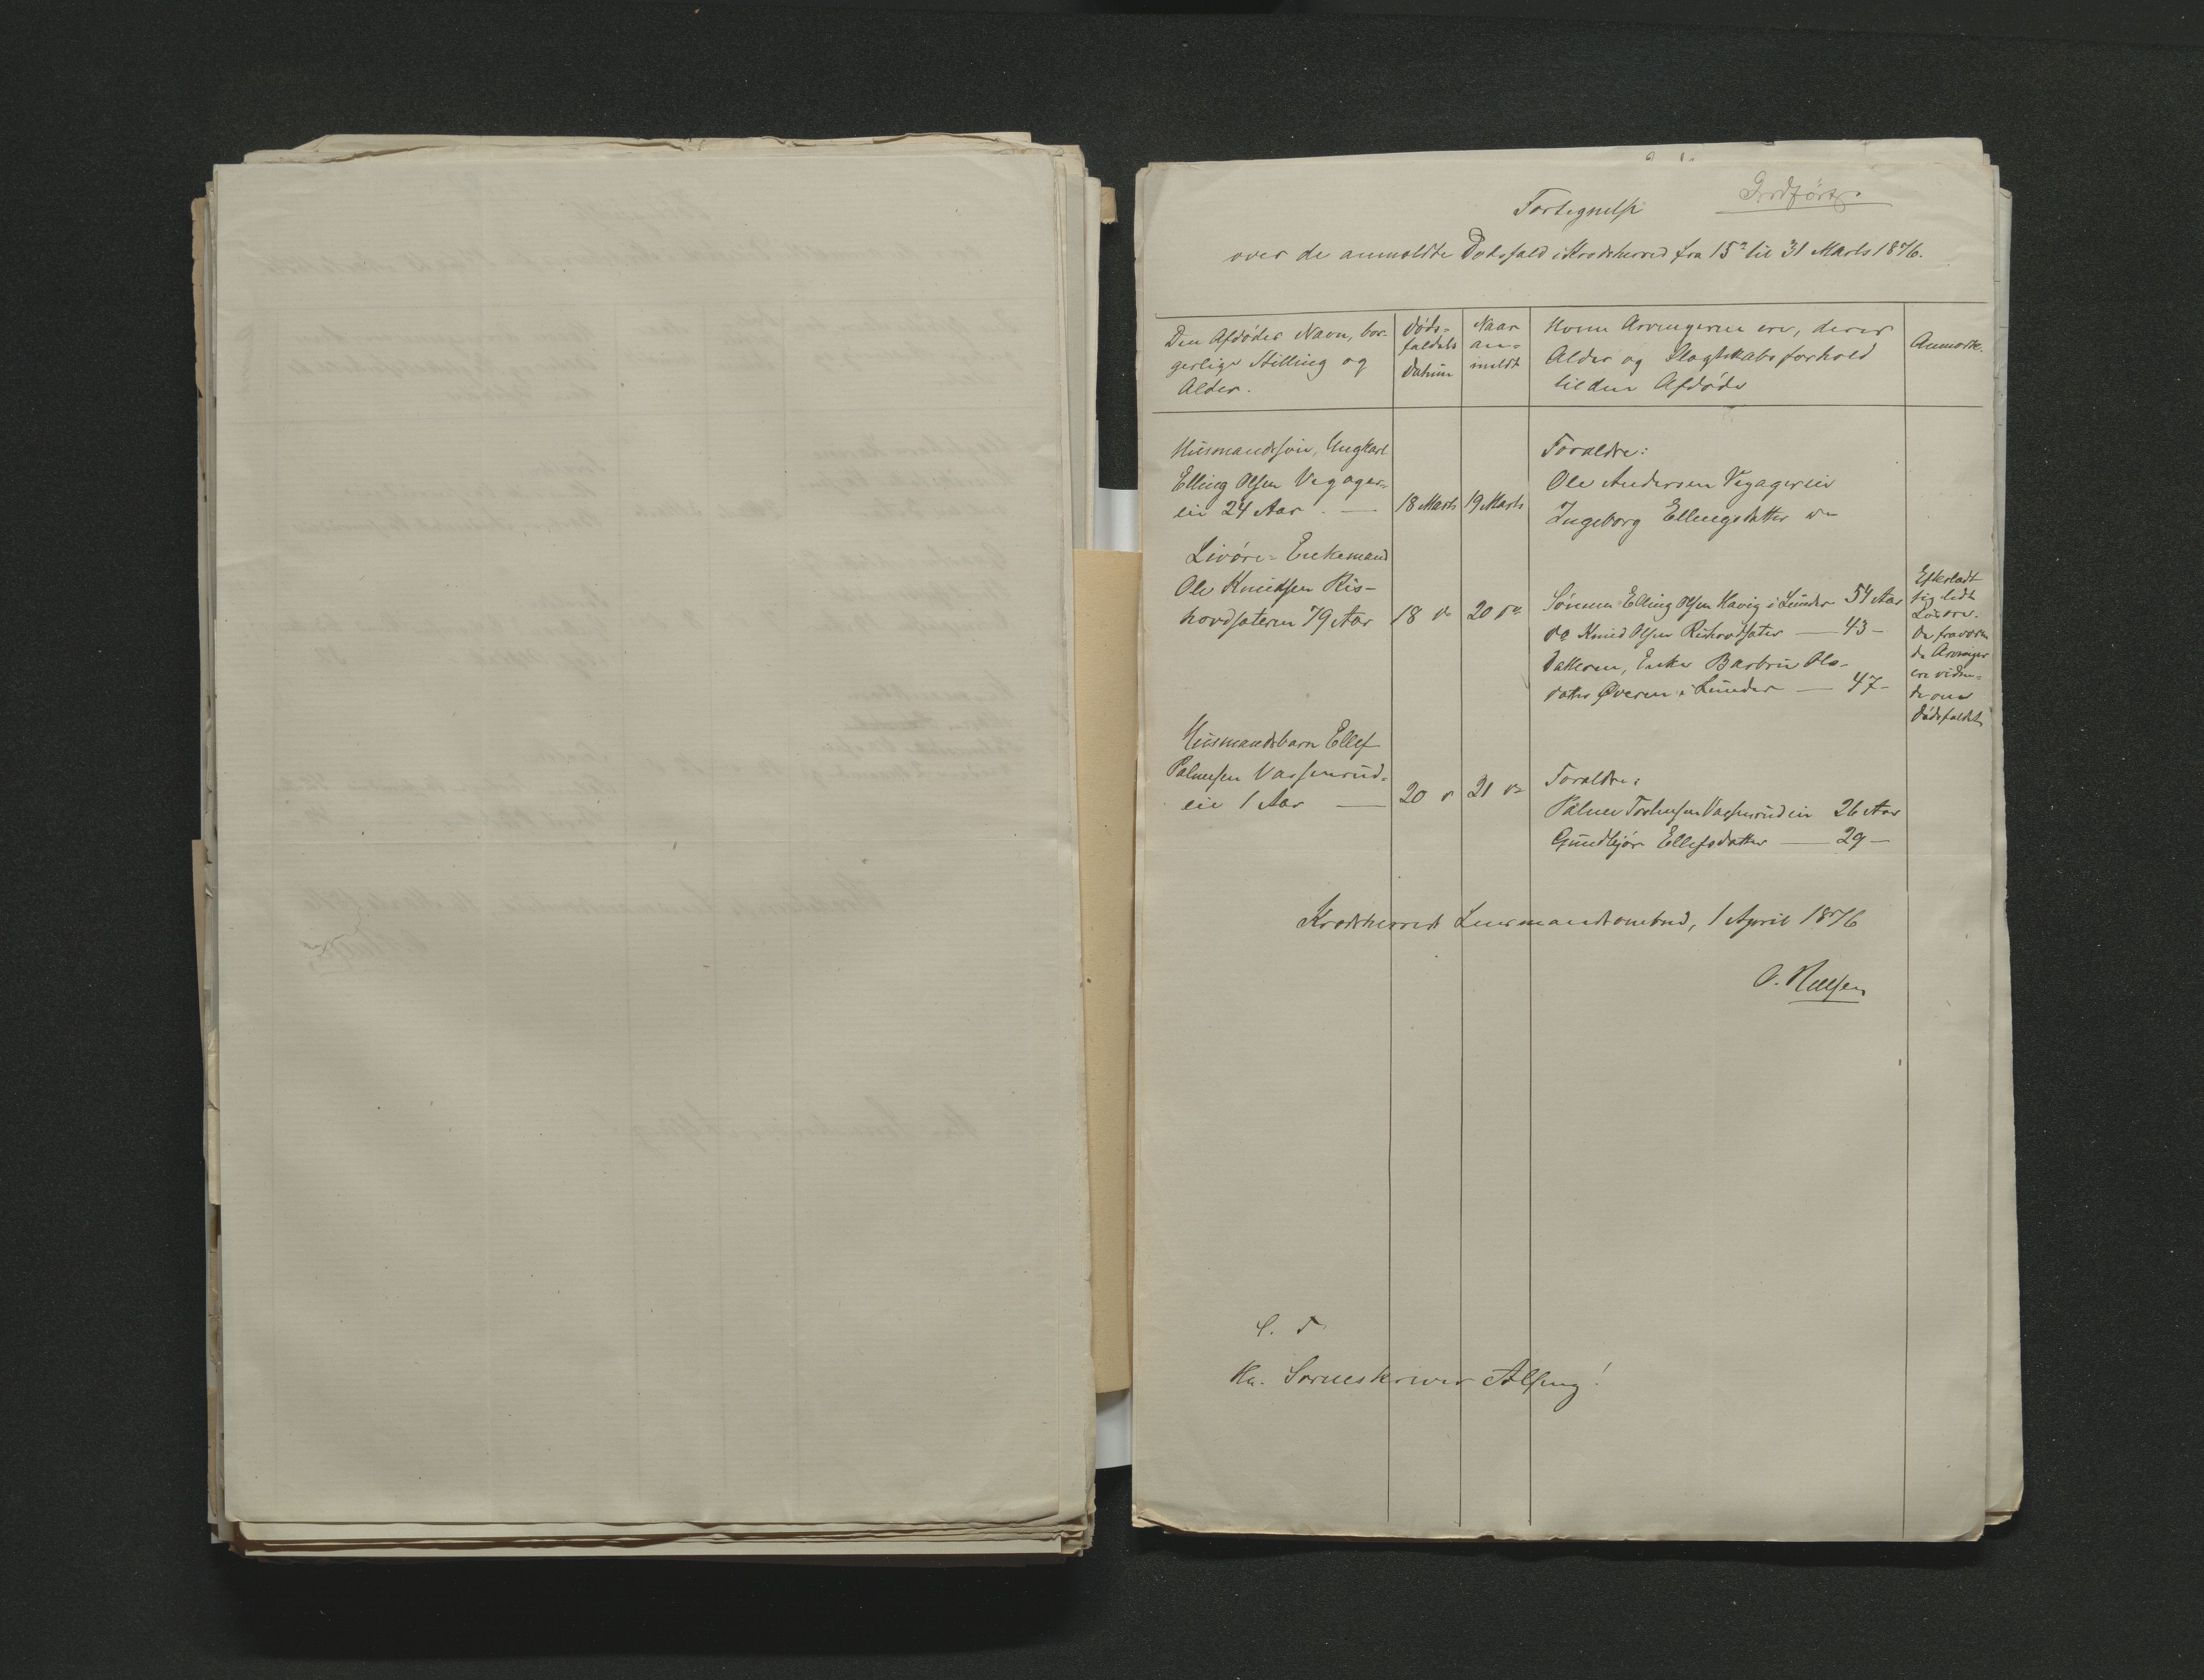 Indført.
Fortegnelse
over de anmeldte Dødsfald i Krødsherred fra 15de til 31 Marts 1876.
Den Afdødes Navn, bor-
gerlige Stilling og
Alder.
Døds-
faldets
Datum
Naar
an-
meldt
Hvem Arvingerne ere, deres
Alder og Slægtskabsforhold
til den Afdøde
Anmærk.
Husmandssøn, Ungkarl
Elling Olsen Vegager-
eie 24 Aar . —
18 Marts
19 Marts
Forældre:
Ole Andersen Vegagereie
Ingeborg Ellingsdatter
Livøre-Enkemand
Ole Knudsen Ris-
hovdsæteren 79 Aar
18 do
20 do
Sønnen Elling Olsen Kavig i Lunder 54 Aar
do Knud Olsen Rishovdsæter — 43 -
Datteren, Enke Barbrie Ols-
datter Øveren i Lunder — 47 -
Efterladt
sig lidt
Løsøre.
De fraværen
de Arvinger
ere viden-
de om
Dødsfaldet
Husmandsbarn Ellef
Palmesen Vassenrud-
eie 1 Aar —
20 d
21 do
Forældre:
Palme Torstensen Vassenrudeie 26 Aar
Gundbjør Ellefsdatter — 29 -
Krødsherreds Lensmandsombud, 1 April 1876
O. Nilsen
S. T
Hr. Sorenskriver Alsing!